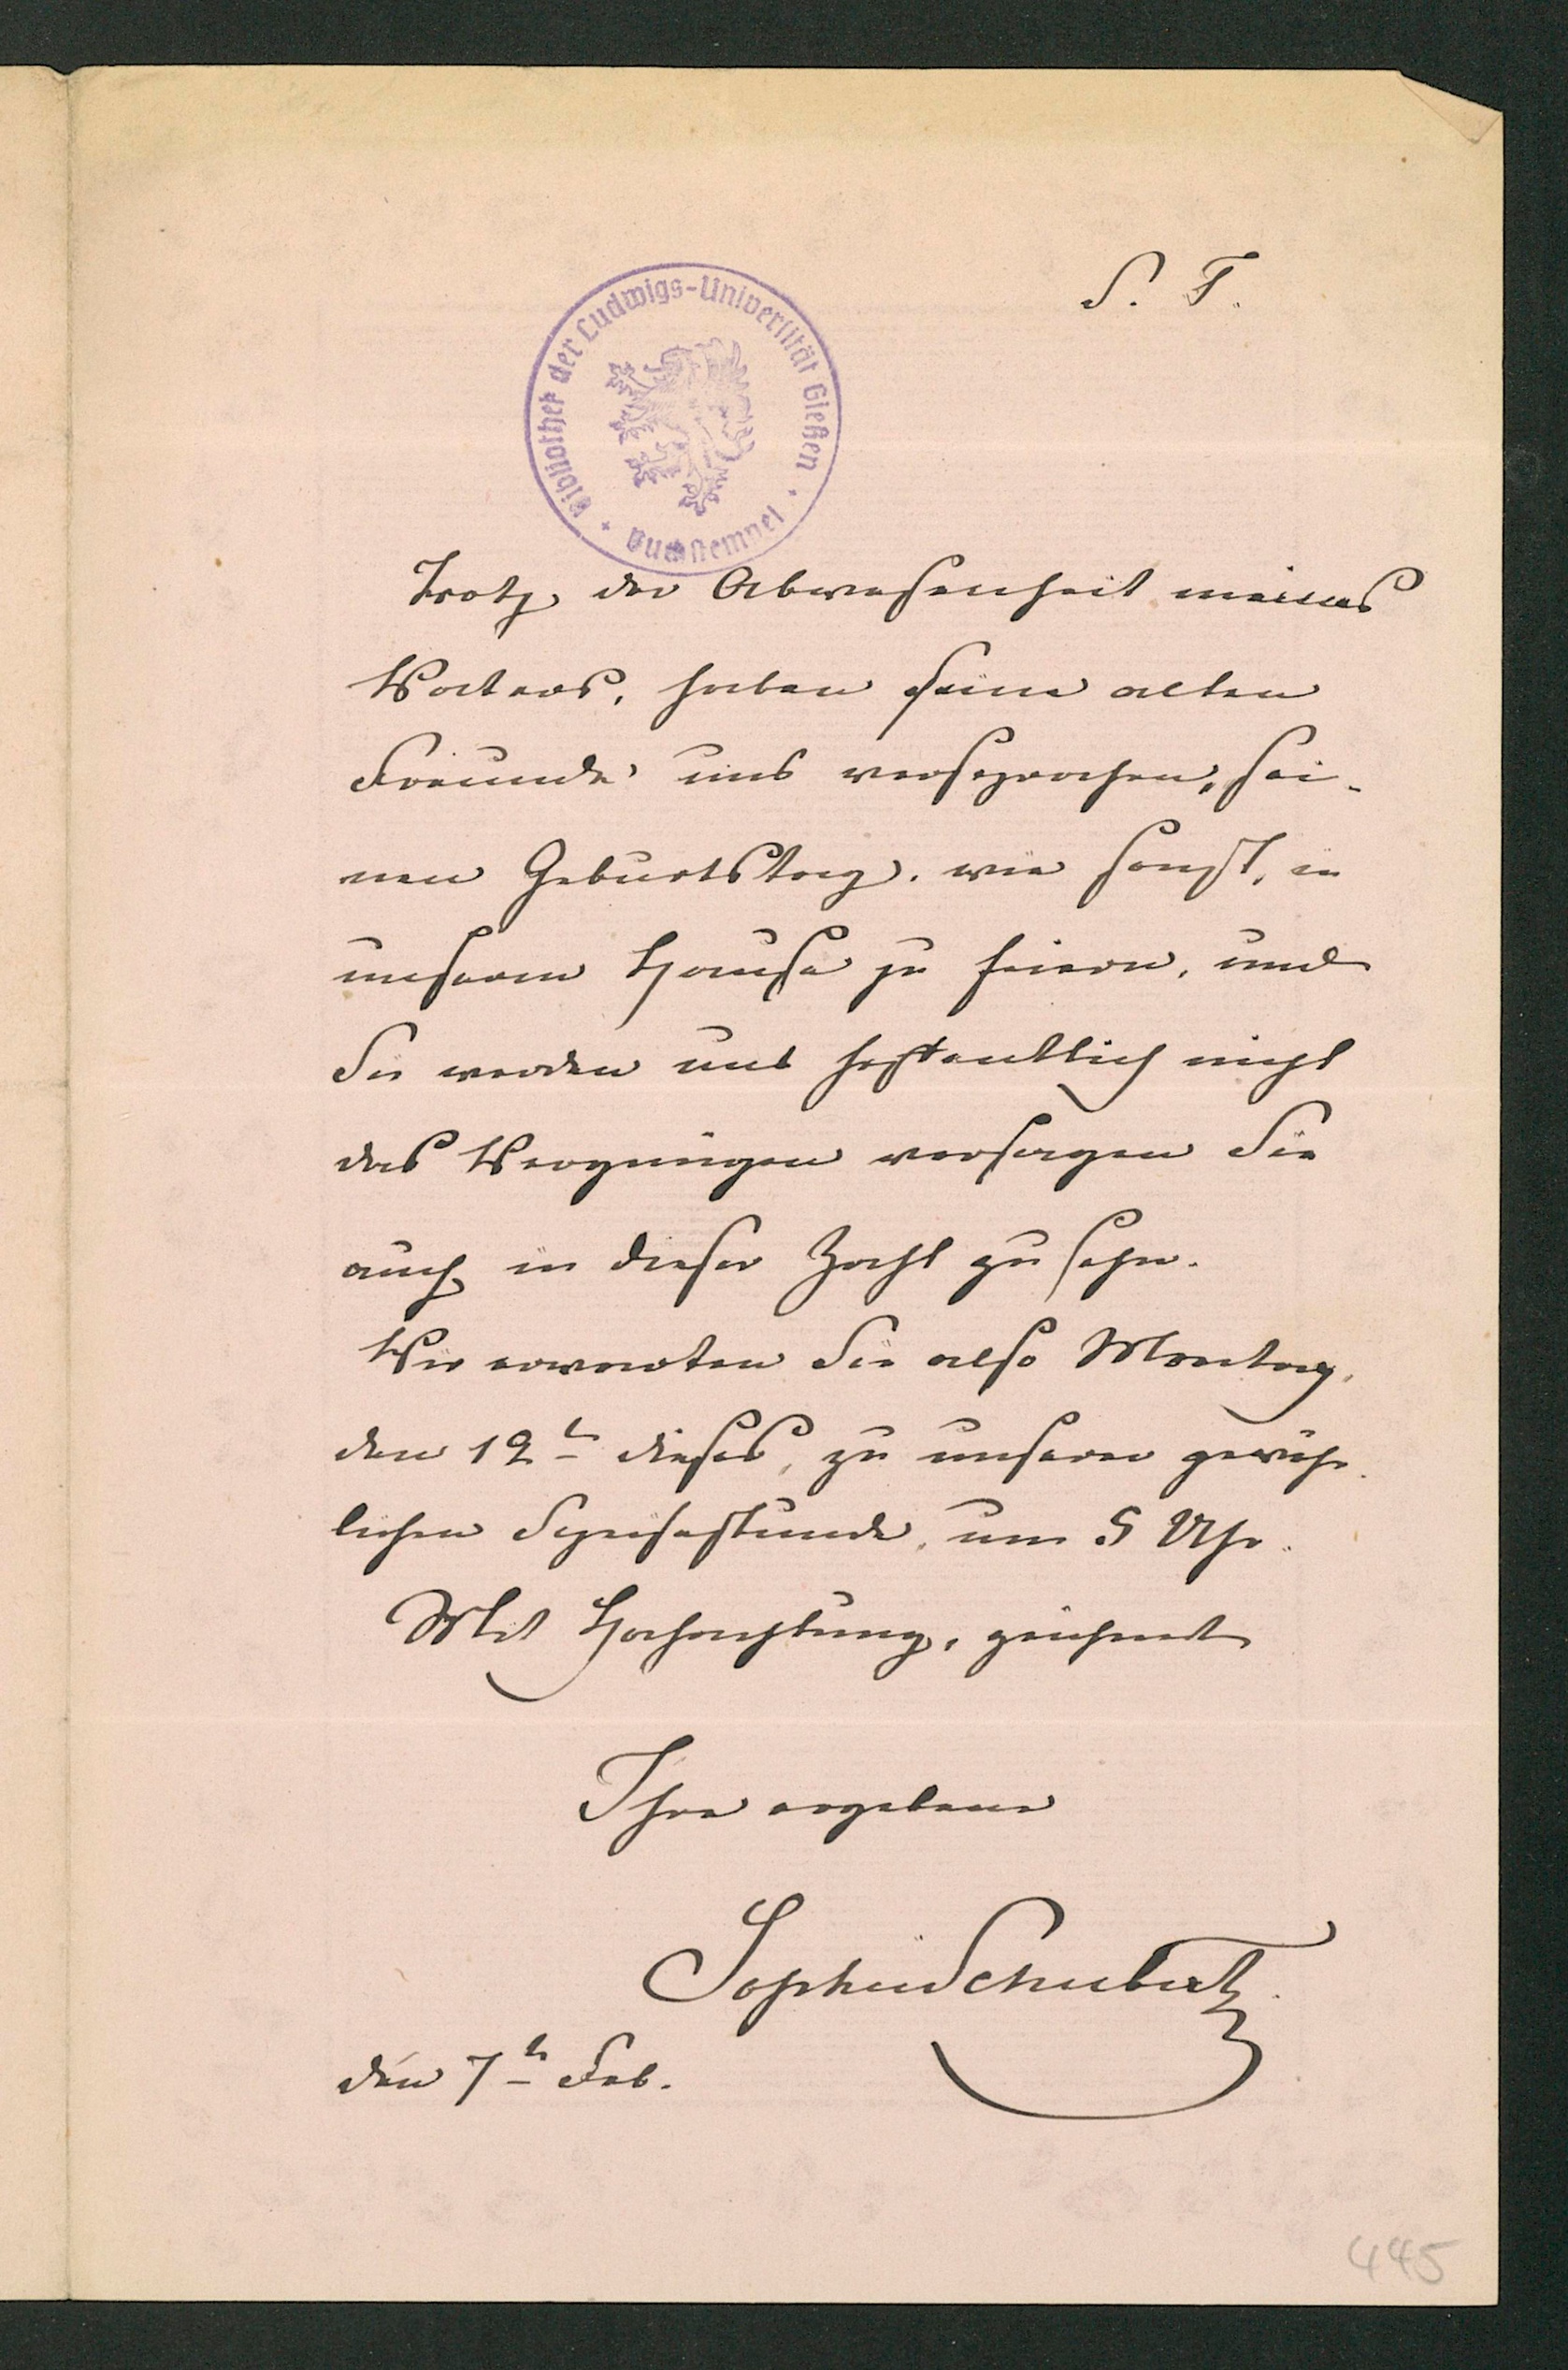 S. T.
Bibliothek der Ludwigs-Universität Gießen · Buchstempel ·
Trotz der Abwesenheit meines
Vaters, haben seine alten
Freunde uns versprochen, sei-
nen Geburtstag, wie sonst, in
unserm Hause zu feiern, und
Sie werden uns hoffentlich nicht
das Vergnügen versagen Sie
auch in dieser Zahl zu sehn.
Wir erwarten Sie also Montag,
den 12t dieses, zu unserer gewöhn-
lichen Speisestunde, um 5 Uhr.
Mit Hochachtung, zeichnet
Ihre ergebene
Sophie Schubert
den 7t Feb.
445